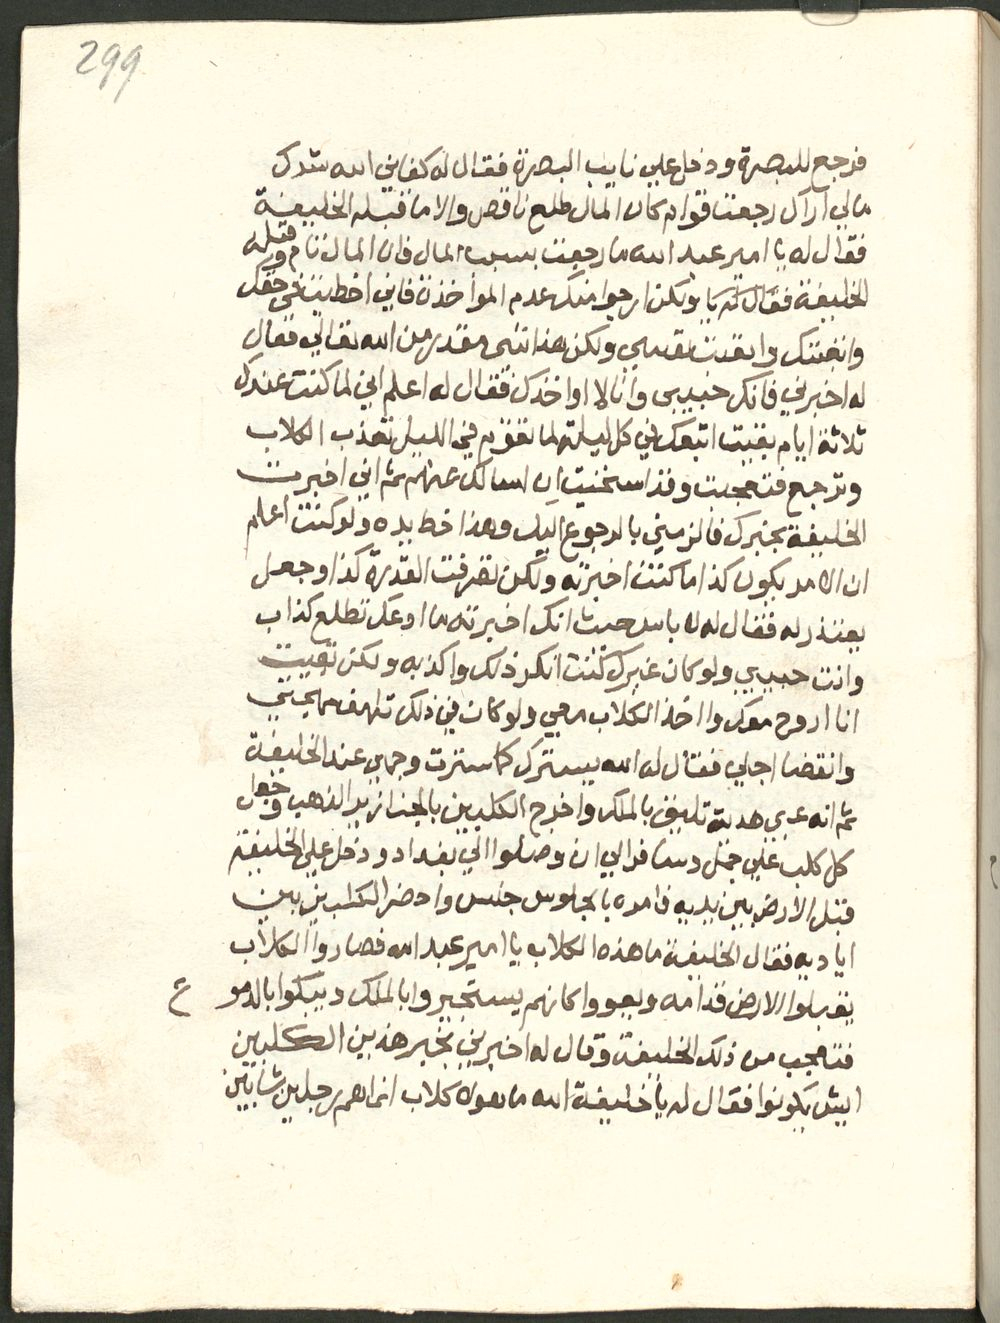 299
فرجع للبصرة ودخل علي نايب البصرة فقال له كفاني الله شرك
مالي اراك رجعت قوام كان المال طلع ناقص والا ما قبله الخليفة
فقال له يا امير عبد الله ما رجعت بسبب المال فان المال تام وقبله
الخليفة ولكن ارجوا منك عدم المواخذة فاني اخطيت في حقك
ولكن هذا شي مقدر من الله تعالي فقال
له اخبرني فانك حبيبي وانا لا اواخذك فقال له اعلم اني لما كنت عندك
ثلاثة ايام بقيت اتبعك في كل ليلة لما تقوم في الليل تعذب الكلاب
وترجع فتعجبت وقد استحيت ان اسالك عنهم ثم اني اخبرت
الخليفة بخبرك فالزمني بالرجوع اليك وهذا خط يده ولو كنت اعلم
ان الامر يكون كذا ما كنت اخبرته ولكن تصرفت القدرة كذا وجعل
يعتذر له فقال له لا باس حيث انك اخبرته ما ادعك تطلع كذاب
وانت حبيبي ولو كان غيرك كنت انكر ذلك واكذبه ولكن بقيت
انا اروح معك واخذ الكلاب معي ولو كان في ذلك تلف مهجتي
وانقضا اجلي فقال له الله يسترك كما سترت وجهي عند الخليفة
ثم انه عبي هدية تليق بالملك واخرج الكلبين بالجنازير الذهب وجعل
كل كلب علي جمل وسافر الي ان وصلوا الي بغداد ودخل علي الخليفة
قبل الارض بين يديه فامره بالجلوس جلس واحضر الكلبين بين
اياديه فقال الخليفة ما هذه الكلاب يا امير عبد الله فصاروا الكلاب
يقبلوا الارض قدامه ويعووا كانهم يستجيروا بالملك ويبكوا بالدموع
فتعجب من ذلك الخليفة وقال له اخبرني بخبر هذين الكلبين
ايش يكونوا فقال له يا خليفة الله ما هولاء كلاب انما هم رجلين شابين